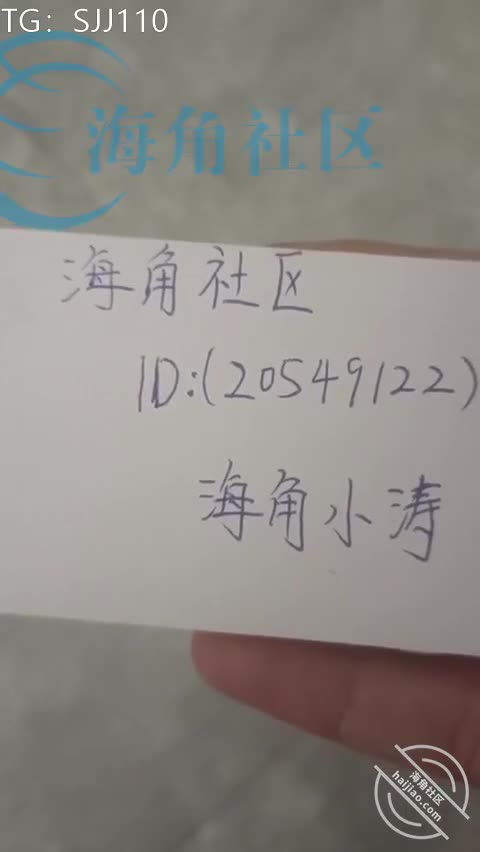 TG：SJJ110
海角社区
海角社区
ID:(20549122)
海角小涛
海角社区
haijiao.com